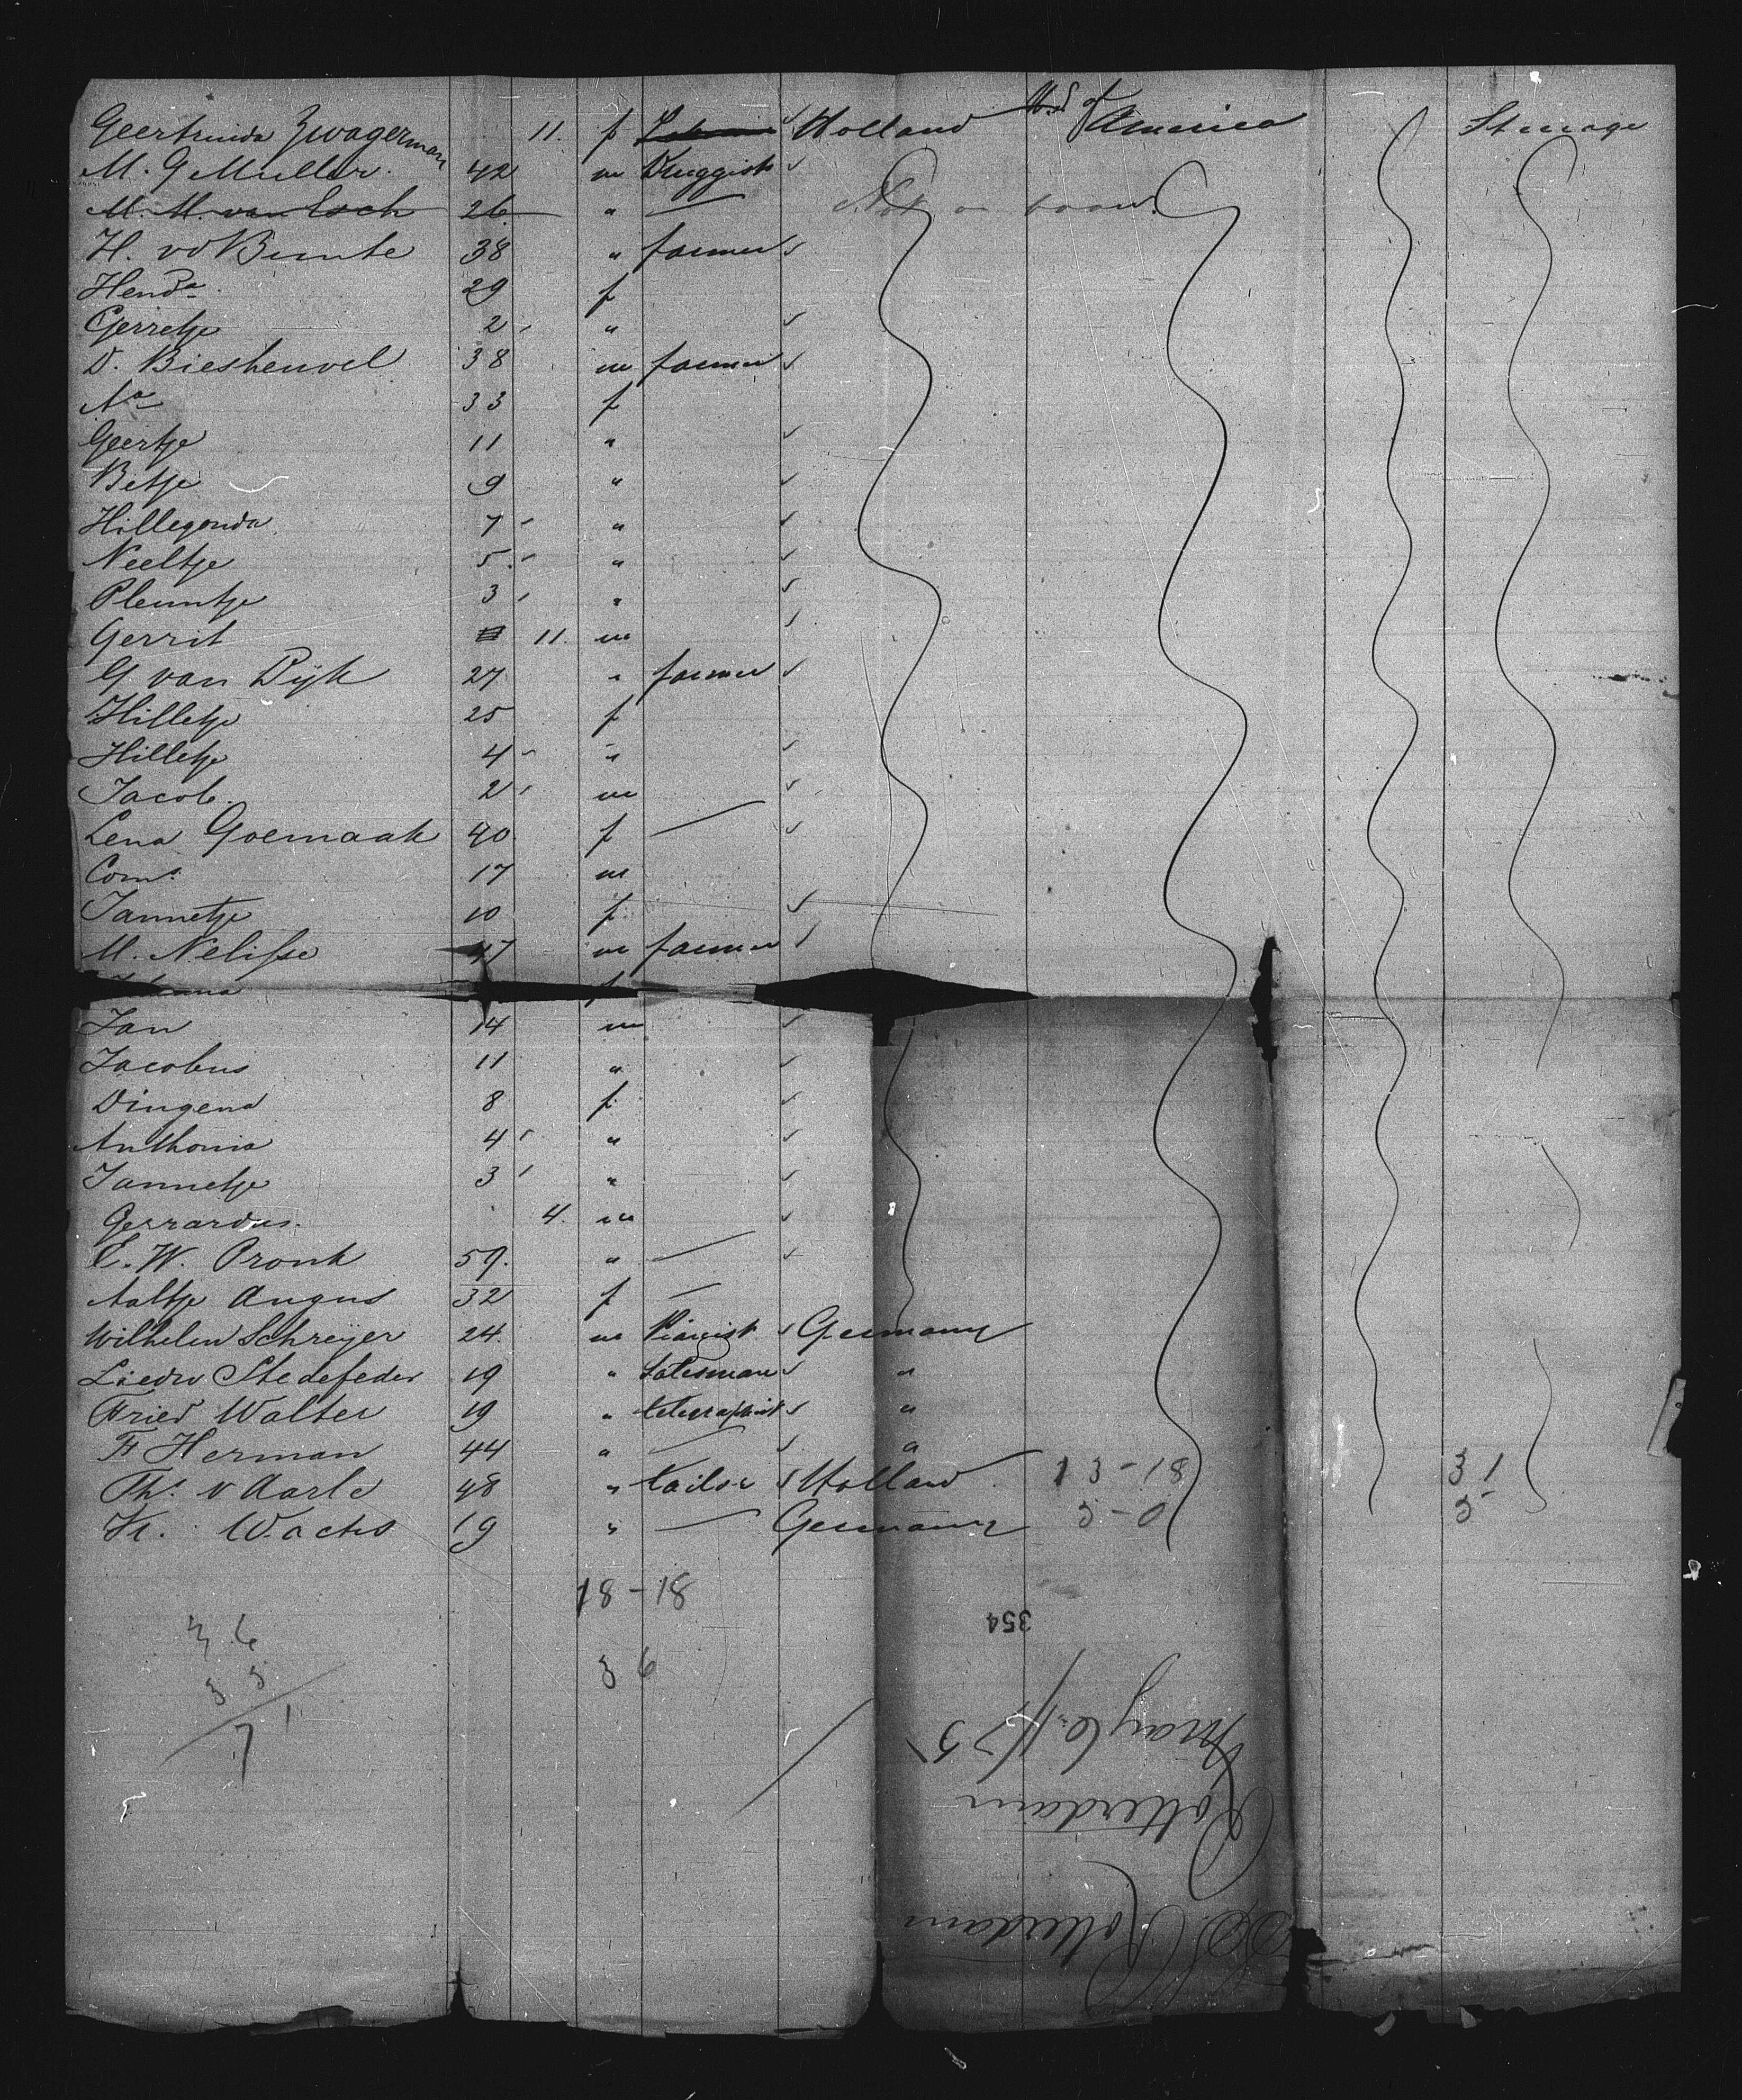 Geertruida Zwagerman 11. f Holland U.S of America Steerage
M. G Muller. 42 m Druggist
M. M. van Esch 26 " — Not on board.
H. vd Bunte 38 " farmer
Hend.a 29 f
Gerretje 2 "
D. Biesheuvel 38 m farmer
Aa 33 f
Geertje 11 "
Betje 9 "
Hillegonda 7 "
Neeltje 5. "
Pleuntje 3 "
Gerrit 11. m
G van Dijk 27 " farmer
Hilletje 25 f
Hilletje 4 "
Jacob. 2 m
Lena Goemaak 40. f —
Corns 17 m
Jannetje 10 f.
M. Nelisse 47 m farmer
f
Jan 14 m
Jacobus 11 "
Dingena 8 f
Anthonia 4 "
Jannetje 3 "
Gerrardus. 4. m
L. W. Pronk 59. " —
Aaltje Angus 32 f —
Wilhelm Schreyer 24. m Pianist Germany
Stedefeder 19 " Salesman "
Fried Walter 19 " telegraphist "
Fr Herman 44 " — "
Ths v Aarle 48 " tailor Holland 13-18 31
Fr. Wachs 19 " — Germany 5-0 5
18-18
36
36
35
71
354
May 6. 1875
Rotterdam
SS. Rotterdam